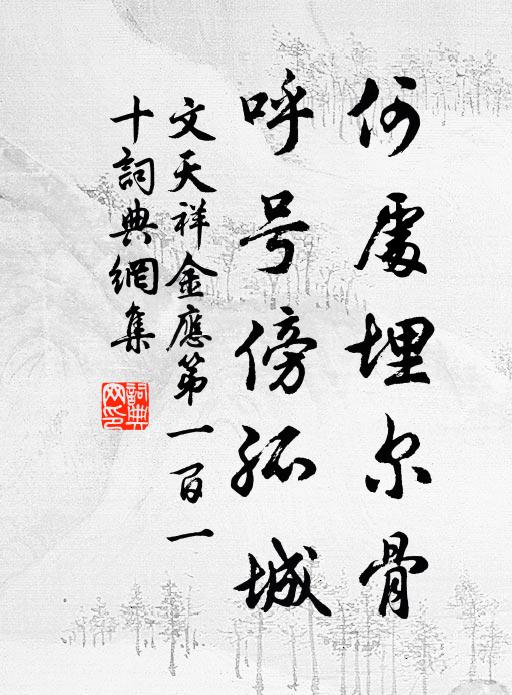 何處埋尔骨
呼号傍孤城
文天祥金應第一百一
十詞典網集
詞典
网印